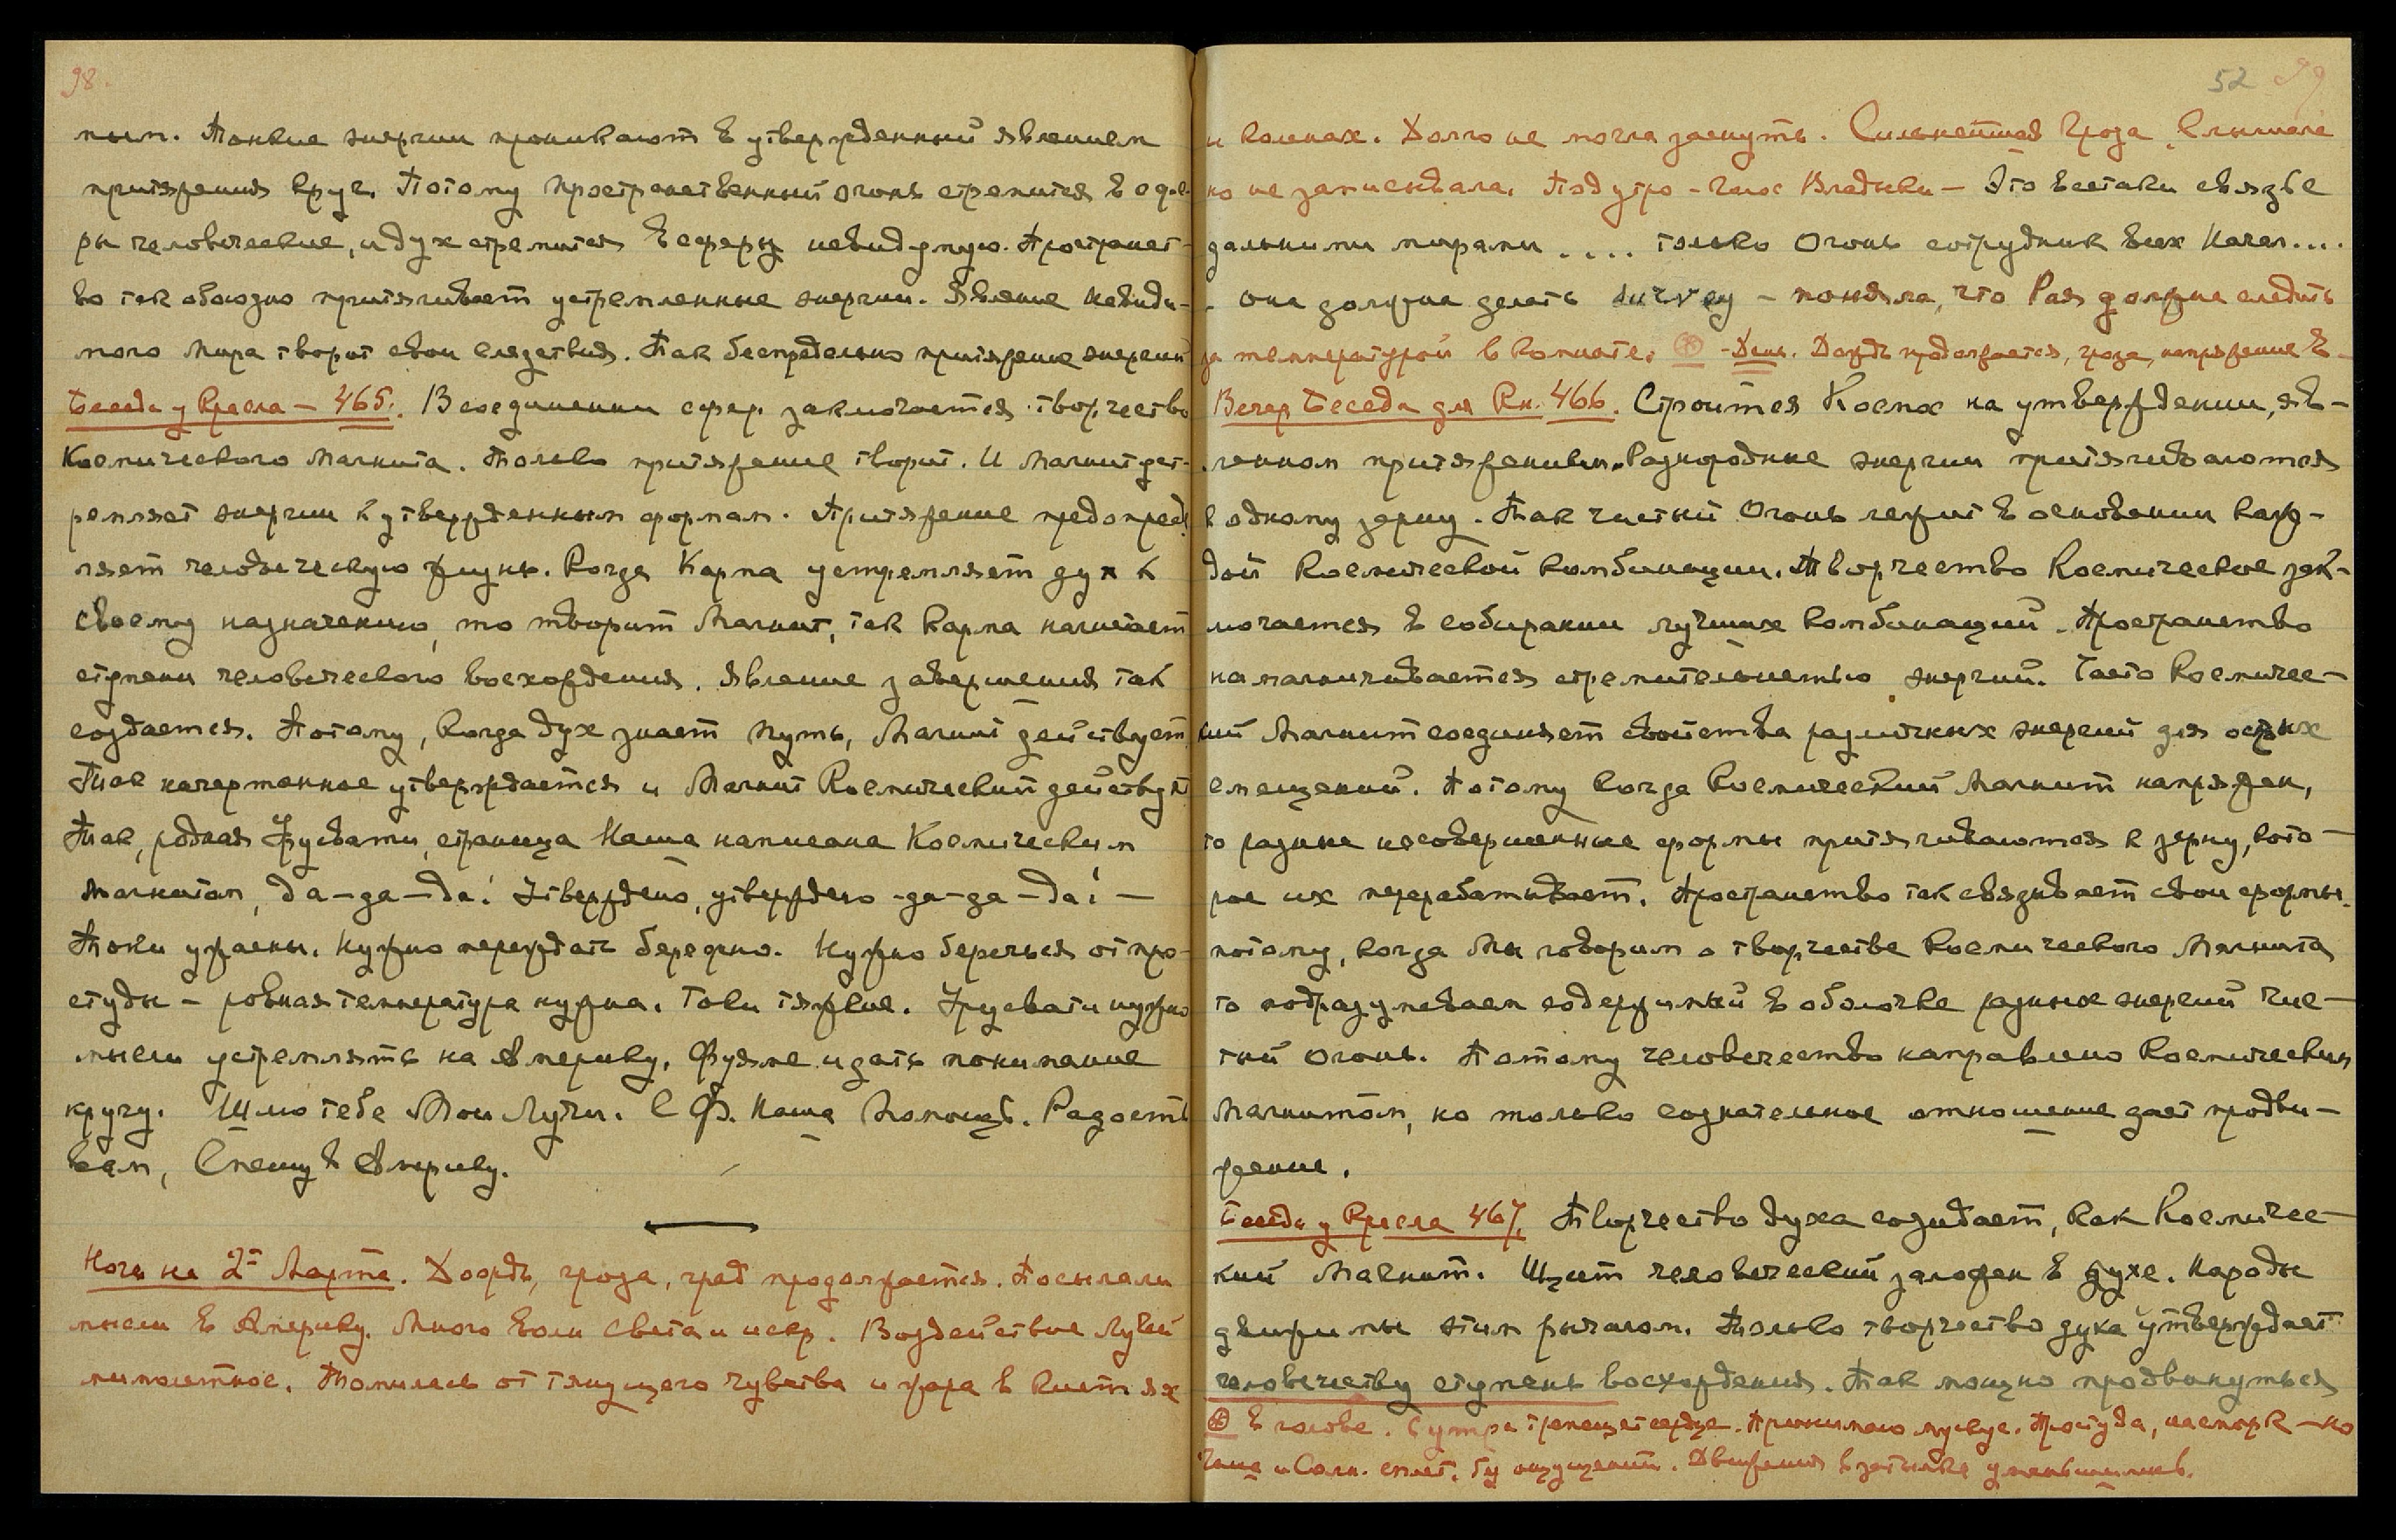 98.
ным. Тонкие энергии проникают в утвержденный явлением
притяжения круг. Потому пространственный огонь стремится в сфе-
ры человеческие, и дух стремится в сферы невидимую. Пространст-
во так обоюдно притягивает устремленные энергии. Явление невиди-
мого мира творит свои следствия. Так беспредельно притяжение энергий
Беседа у Кресла – 465. В соединении сфер заключается творчество
Космического Магнита. Только притяжение творит. И Магнит уст-
ремляет энергии к утвержденным формам. Притяжение предопреде-
ляет человеческую жизнь. Когда Карма устремляет дух к
своему назначению, то творит Магнит, так Карма начитает
ступени человеческого восхождения. Явление завершения так
создается. Потому, когда дух знает путь, Магнит действует
Так начертанное утверждается и Магнит Космический действует
Так, родная Урусвати, страница Наша написана Космическим
Магнитом, да-да-да! Утверждено, утверждено -да-да-да! –
Токи ужасны. Нужно переждать бережно. Нужно беречься от про-
студы – ровная температура нужна. Токи тяжкие. Урусвати нужно
мысли устремлять на Америку. Фуяме и дать понимание
кругу. Шлю тебе Мои Лучи. С Ф. Наша Помощь. Радость
вам, Спешу в Америку.
Ночь на 2-ое Марта. Дождь, гроза, град продолжается. Посылали
мысли в Америку. Много волн света и искр. Воздействие Лучей
мимолетное. Томилась от тянущего чувства и жара в кистях
52 99
и коленах. Долго не могла заснуть. Сильнейшая гроза. Слышала
но не записывала. Под утро – Голос Владыки – Это всетаки связь с
дальними мирами .... только Огонь сотрудник всех Начал....
– она должна делать survey – поняла, что Рая должна следить
за температурой в комнате. ⊛ – День. Дождь продолжается, гроза, напряжение в –
Вечер Беседа для Кн. 466. Строится Космос на утверждении, яв-
ленном притяжением. Разнородные энергии притягиваются
к одному зерну. Так чистый Огонь лежит в основании каж-
дой космической комбинации. Творчество Космическое зак-
лючается в собирании лучших комбинаций. Пространство
намагничивается стремительностью энергий. Часто Космичес-
кий Магнит соединяет свойства различных энергий для острых
смещений. Потому когда Космический Магнит напряжен,
то разные несовершенные формы притягиваются к зерну, кото-
рое их перерабатывает. Пространство так связывает свои формы.
потому, когда Мы говорим о творчестве Космического Магнита
то подразумеваем содержимый в оболочке разных энергий чис-
тый огонь. Потому человечество направлено Космическим
Магнитом, но только сознательное отношение дает продви-
жение.
Беседа у Кресла 467. Творчество духа созидает, как Космичес-
кий Магнит. Щит человеческий заложен в духе. Народы
движимы этим рычагом. Только творчество духа утверждает
человечеству ступень восхождения. Так мощно продвинуться
⊛ в голове. С утра трепещет сердце. Принимаю мускус. Простуда, насморк – но
Чаша и Солн. сплет. ощущений. Движения в затылке уменьшились.